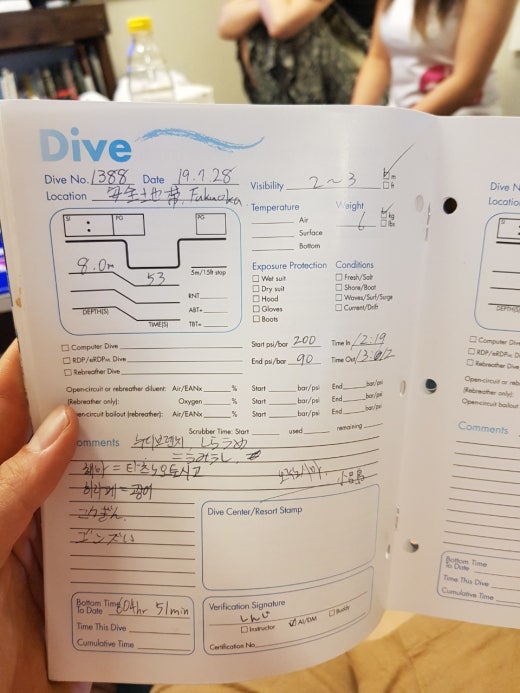 Dive
Dive No. 1388 Date 19.7.28
Location 安全地帯, Fukuoka
Visibility 2~3 m
ft
Temperature
Air
Surface
Bottom
Weight
6 kg
lbs
SI : PG PG
8.0m
53
5m/15ft stop
RNT
ABT=
TBT=
DEPTH(S)
TIME(S)
Exposure Protection
Wet suit
Dry suit
Hood
Gloves
Boots
Conditions
Fresh/Salt
Shore/Boat
Waves/Surf/Surge
Current/Drift
Computer Dive
RDP/eRDPML Dive
Rebreather Dive
Start psi/bar 200 Time In 12:19
End psi/bar 90 Time Out
Open-circuit or rebreather diluent: Air/EANx % Start bar/psi End bar/psi
(Rebreather only): Oxygen % Start bar/psi End bar/psi
open-circuit bailout (rebreather): Air/EANx % Start bar/psi End bar/psi
Scrubber Time: Start used remaining
Comments
해마 = タツノオトシゴ
광어
ゴンズイ
Dive Center/Resort Stamp
Bottom Time To Date 604hr 51min
Time This Dive
Cumulative Time
Verification Signature
しんじ
Instructor AI/DM Buddy
Certification No.
Dive N
Location
DEPTH(S)
Computer Dive
RDP/eRDPML
Rebreather
Open-circuit or
(Rebreather only)
Open-circuit bailout
Comments
Bottom Time
To Date
Time This Dive
Cumulative Time